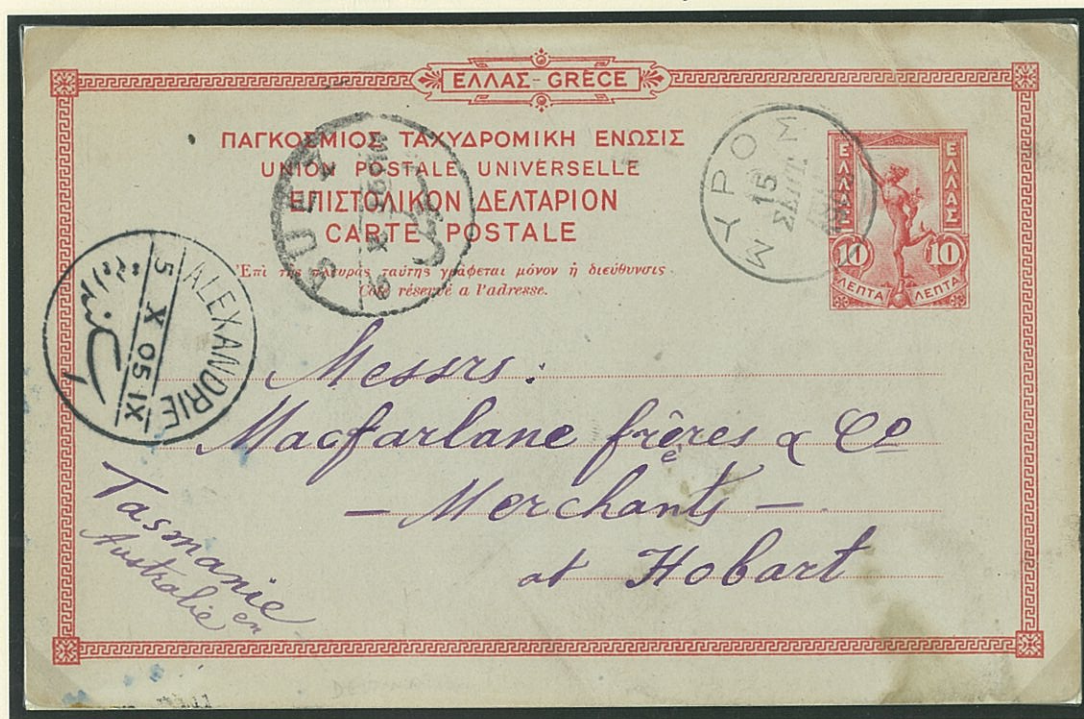 ΕΛΛΑΣ-GRÈCE
ΠΑΓΚΟΣΜΙΟΣ ΤΑΧΥΔΡΟΜΙΚΗ ΕΝΩΣΙΣ
UNION POSTALE UNIVERSELLE
ΕΠΙΣΤΟΛΙΚΟΝ ΔΕΛΤΑΡΙΟΝ
CARTE POSTALE
Ἐπὶ τῆς πλευρᾶς ταύτης γράφεται μόνον ἡ διεύθυνσις
Côté réservé a l'adresse.
ΕΛΛΑΣ ΕΛΛΑΣ
10 10
ΛΕΠΤΑ ΛΕΠΤΑ
15
ΣΕΠΤ.
SUEZ
ALEXANDRIE
5 X 05 IX
Messrs:
Macfarlane frères & Co
- Merchants -
at Hobart
Tasmanie
Australie en